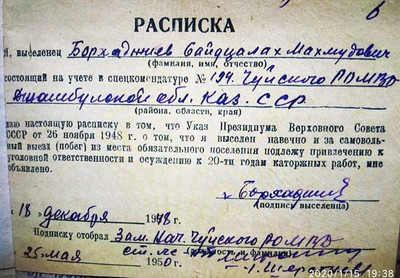 6
РАСПИСКА
Я, выселенец Борхаджиев Сайдцалах Махмудович
(фамилия, имя, отчество)
состоящий на учете в спецкомендатуре № 194. Чуйского РОМВД
Джамбулской обл. Каз. ССР
(района, области, края)
даю настоящую расписку в том, что Указ Президиума Верховного Совета
СССР от 26 ноября 1948 г. о том, что я выселен навечно и за самоволь-
ный выезд (побег) из места обязательного поселения подлежу привлечению к
уголовной ответственности и осуждению к 20-ти годам каторжных работ, мне
объявлено.
Борхаджиев
(подпись выселенца)
18 декабря 1948 г.
Подписку отобрал Зам. Нач. Чуйского РОМВД
ст. лс
25 мая 1950 г.
2020/1/15 19:38